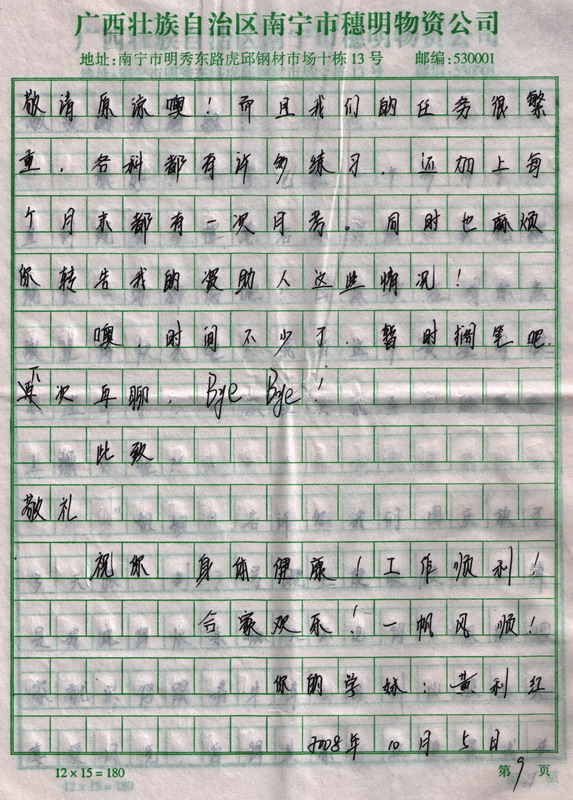 广西壮族自治区南宁市穗明物资公司
地址:南宁市明秀东路虎邱钢材市场十栋13号 邮编:530001
敬请原谅噢!而且我们的任务很繁
重,各科都有许多练习,还加上每
个月末都有一次月考。同时也麻烦
你转告我的资助人这些情况!
噢,时间不少了,暂时搁笔吧.
下次再聊,Bye Bye!
此致
敬礼
祝你 身体健康!工作顺利!
合家欢乐!一帆风顺!
你的学妹:黄利红
2008年10月5日
12×15=180 第9页